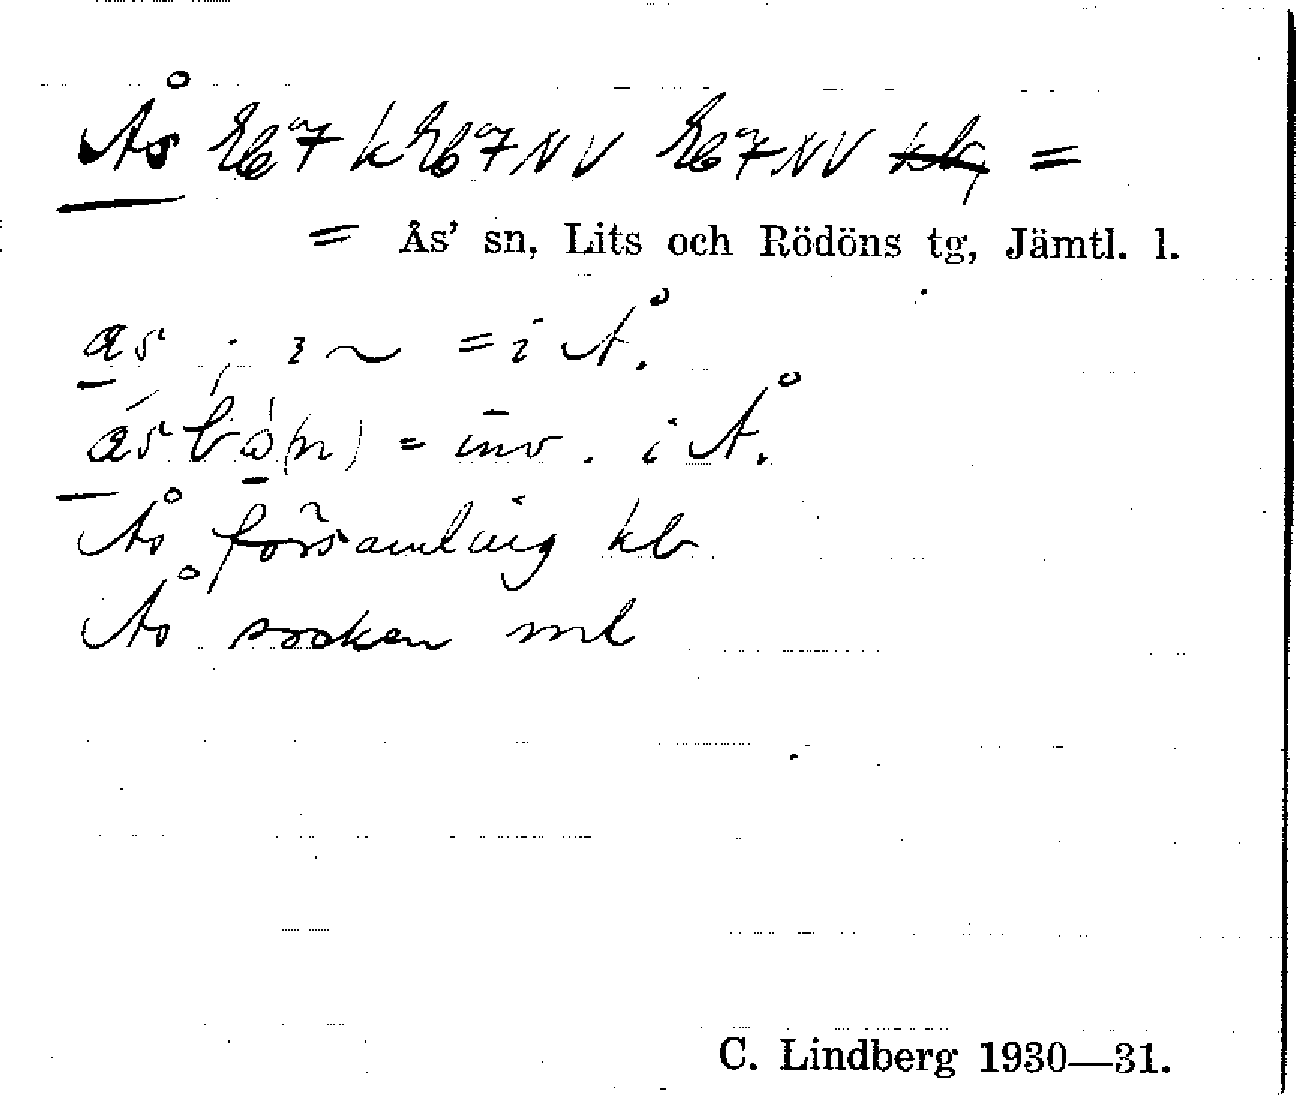 Ås Eb7 k Eb7NV Eb7NV =
= Ås' sn, Lits och Rödöns tg, Jämtl. l.
as ; ɪ ~ = i Å.
ásb (n) = inv. i Å.
Ås församling kb
Ås socken ml
C. Lindberg 1930—31.